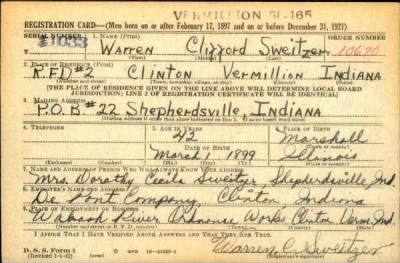 VERMILLION 51-165
REGISTRATION CARD—(Men born on or after February 17, 1897 and on or before December 31, 1921)
SERIAL NUMBER 1. NAME (Print) ORDER NUMBER
1033 Warren Clifford Sweitzer 10670
(First) (Middle) (Last)
2. PLACE OF RESIDENCE (Print)
R.F.D #2 Clinton Vermillion Indiana
(Number and street) (Town, township, village, or city) (County) (State)
[THE PLACE OF RESIDENCE GIVEN ON THE LINE ABOVE WILL DETERMINE LOCAL BOARD
JURISDICTION; LINE 2 OF REGISTRATION CERTIFICATE WILL BE IDENTICAL]
3. MAILING ADDRESS
P.O.B #22 Shepherdsville, Indiana
[Mailing address if other than place indicated on line 2. If same insert word same]
4. TELEPHONE 5. AGE IN YEARS 6. PLACE OF BIRTH
42 Marshall
DATE OF BIRTH (Town or county)
March 1 1899 Illinois
(Exchange) (Number) (Mo.) (Day) (Yr.) (State or country)
7. NAME AND ADDRESS OF PERSON WHO WILL ALWAYS KNOW YOUR ADDRESS
Mrs. Dorothy Cecile Sweitzer Shepherdsville, Ind.
8. EMPLOYER'S NAME AND ADDRESS
De Pont Company, Clinton Indiana
9. PLACE OF EMPLOYMENT OR BUSINESS
Wabash River Ordnance Works Clinton Verm. Ind.
(Number and street or R. F. D. number) (Town) (County) (State)
I AFFIRM THAT I HAVE VERIFIED ABOVE ANSWERS AND THAT THEY ARE TRUE.
D. S. S. Form 1
(Revised 1-1-42) GPO (over)
Warren C. Sweitzer
(Registrant's signature)